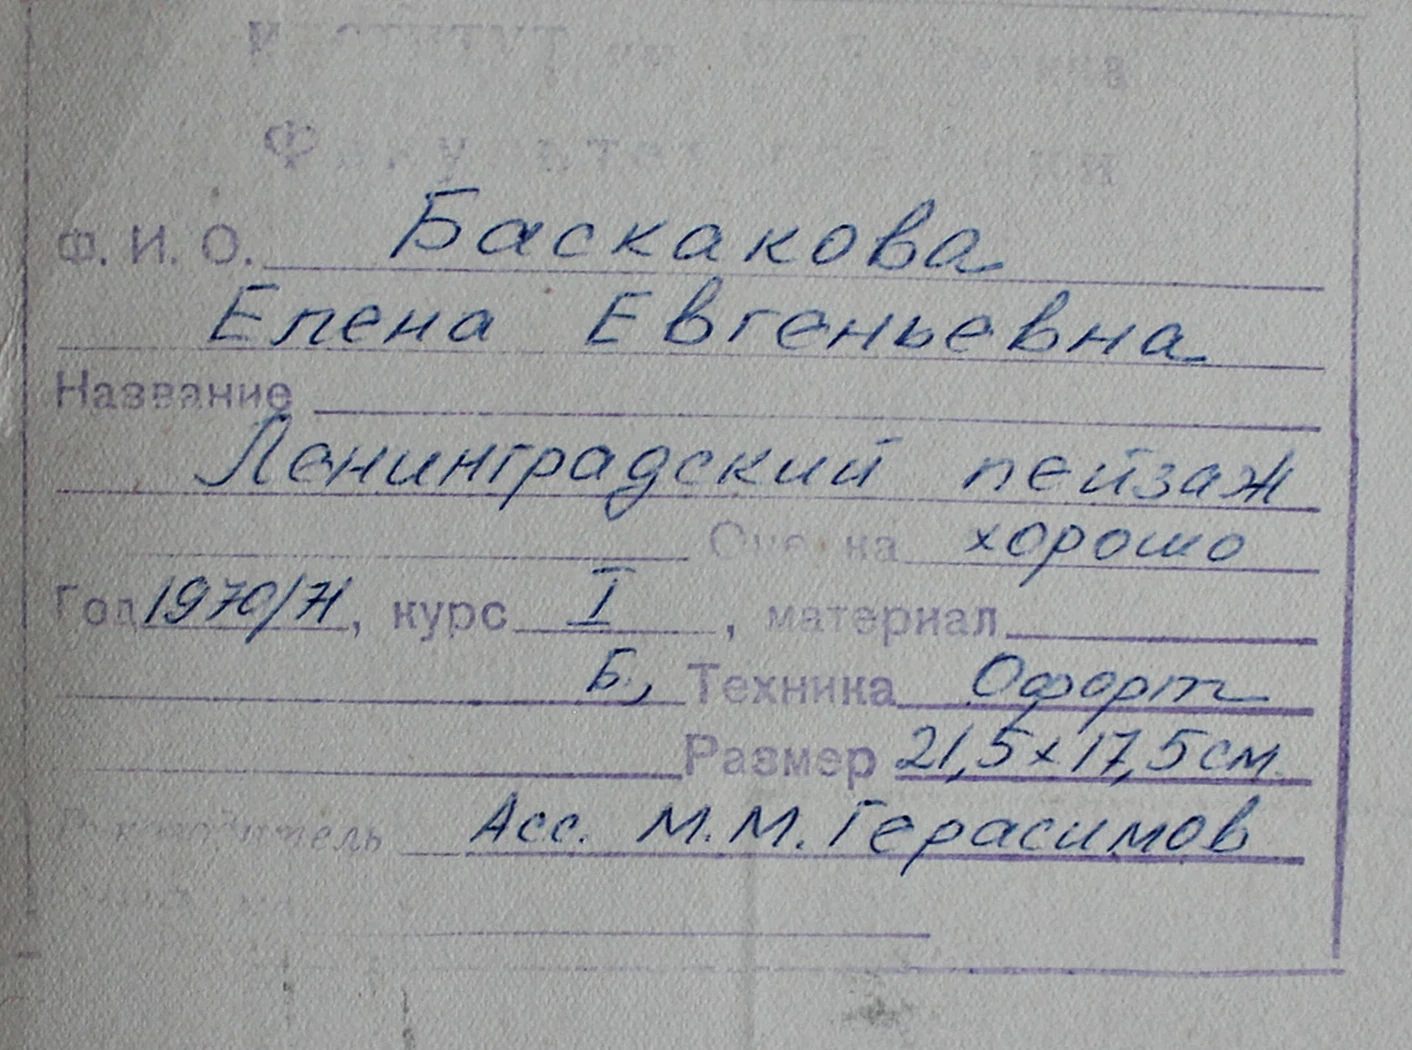 Институт им. И. Е. Репина
Факультет
Ф. И. О. Баскакова
Елена Евгеньевна
Название
Ленинградский пейзаж
Оценка хорошо
Год 1970/71, курс I, материал
Б., Техника Офорт
Размер 21,5х17,5 см.
Руководитель Асс. М.М. Герасимов